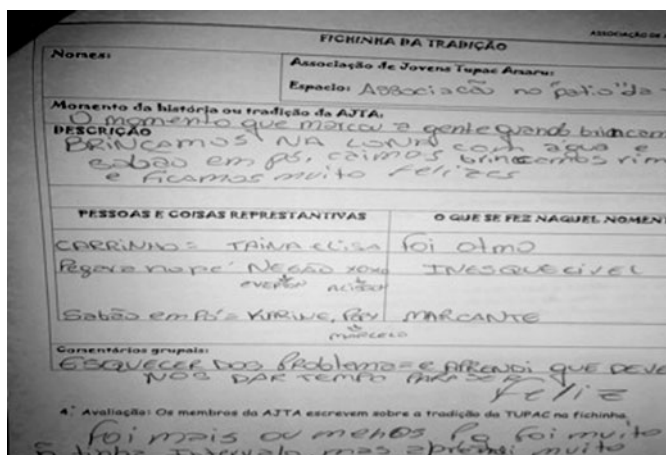 ASSOCIAÇÃO DE
FICHINHA DA TRADIÇÃO
Nomes:
Associação de Jovens Tupac Amaru:
Espacio: Associação no "patio" da
Momento da história ou tradição da AJTA.
O momento que marcou a gente quando brincam
DESCRIÇÃO
BRINCAMOS NA LONA com água e
sabão em pó, caimos brincamos rim
e ficamos muito felizes
PESSOAS E COISAS REPRESTANTIVAS
O QUE SE FEZ NAQUEL NOMENT
CARRINHO= TAINA ELISA
foi otmo
Pegava no pé NEGÃO xoxo
INESQUECIVEL
EVERTON ALISSON
Sabão em Pó= KARINE, Pepy
MARCANTE
MARCELO
Comentários grupais:
ESQUECER DOS PRoblemas e APRENDI QUE DEVE
NOS DAR TEMPO PARA SER
feliz
4. Avaliação: Os membros da AJTA escrevem sobre a tradição da TUPAC na fichinha
foi mais ou menos Pq foi muito
tinha intervalo mas aprendi muito